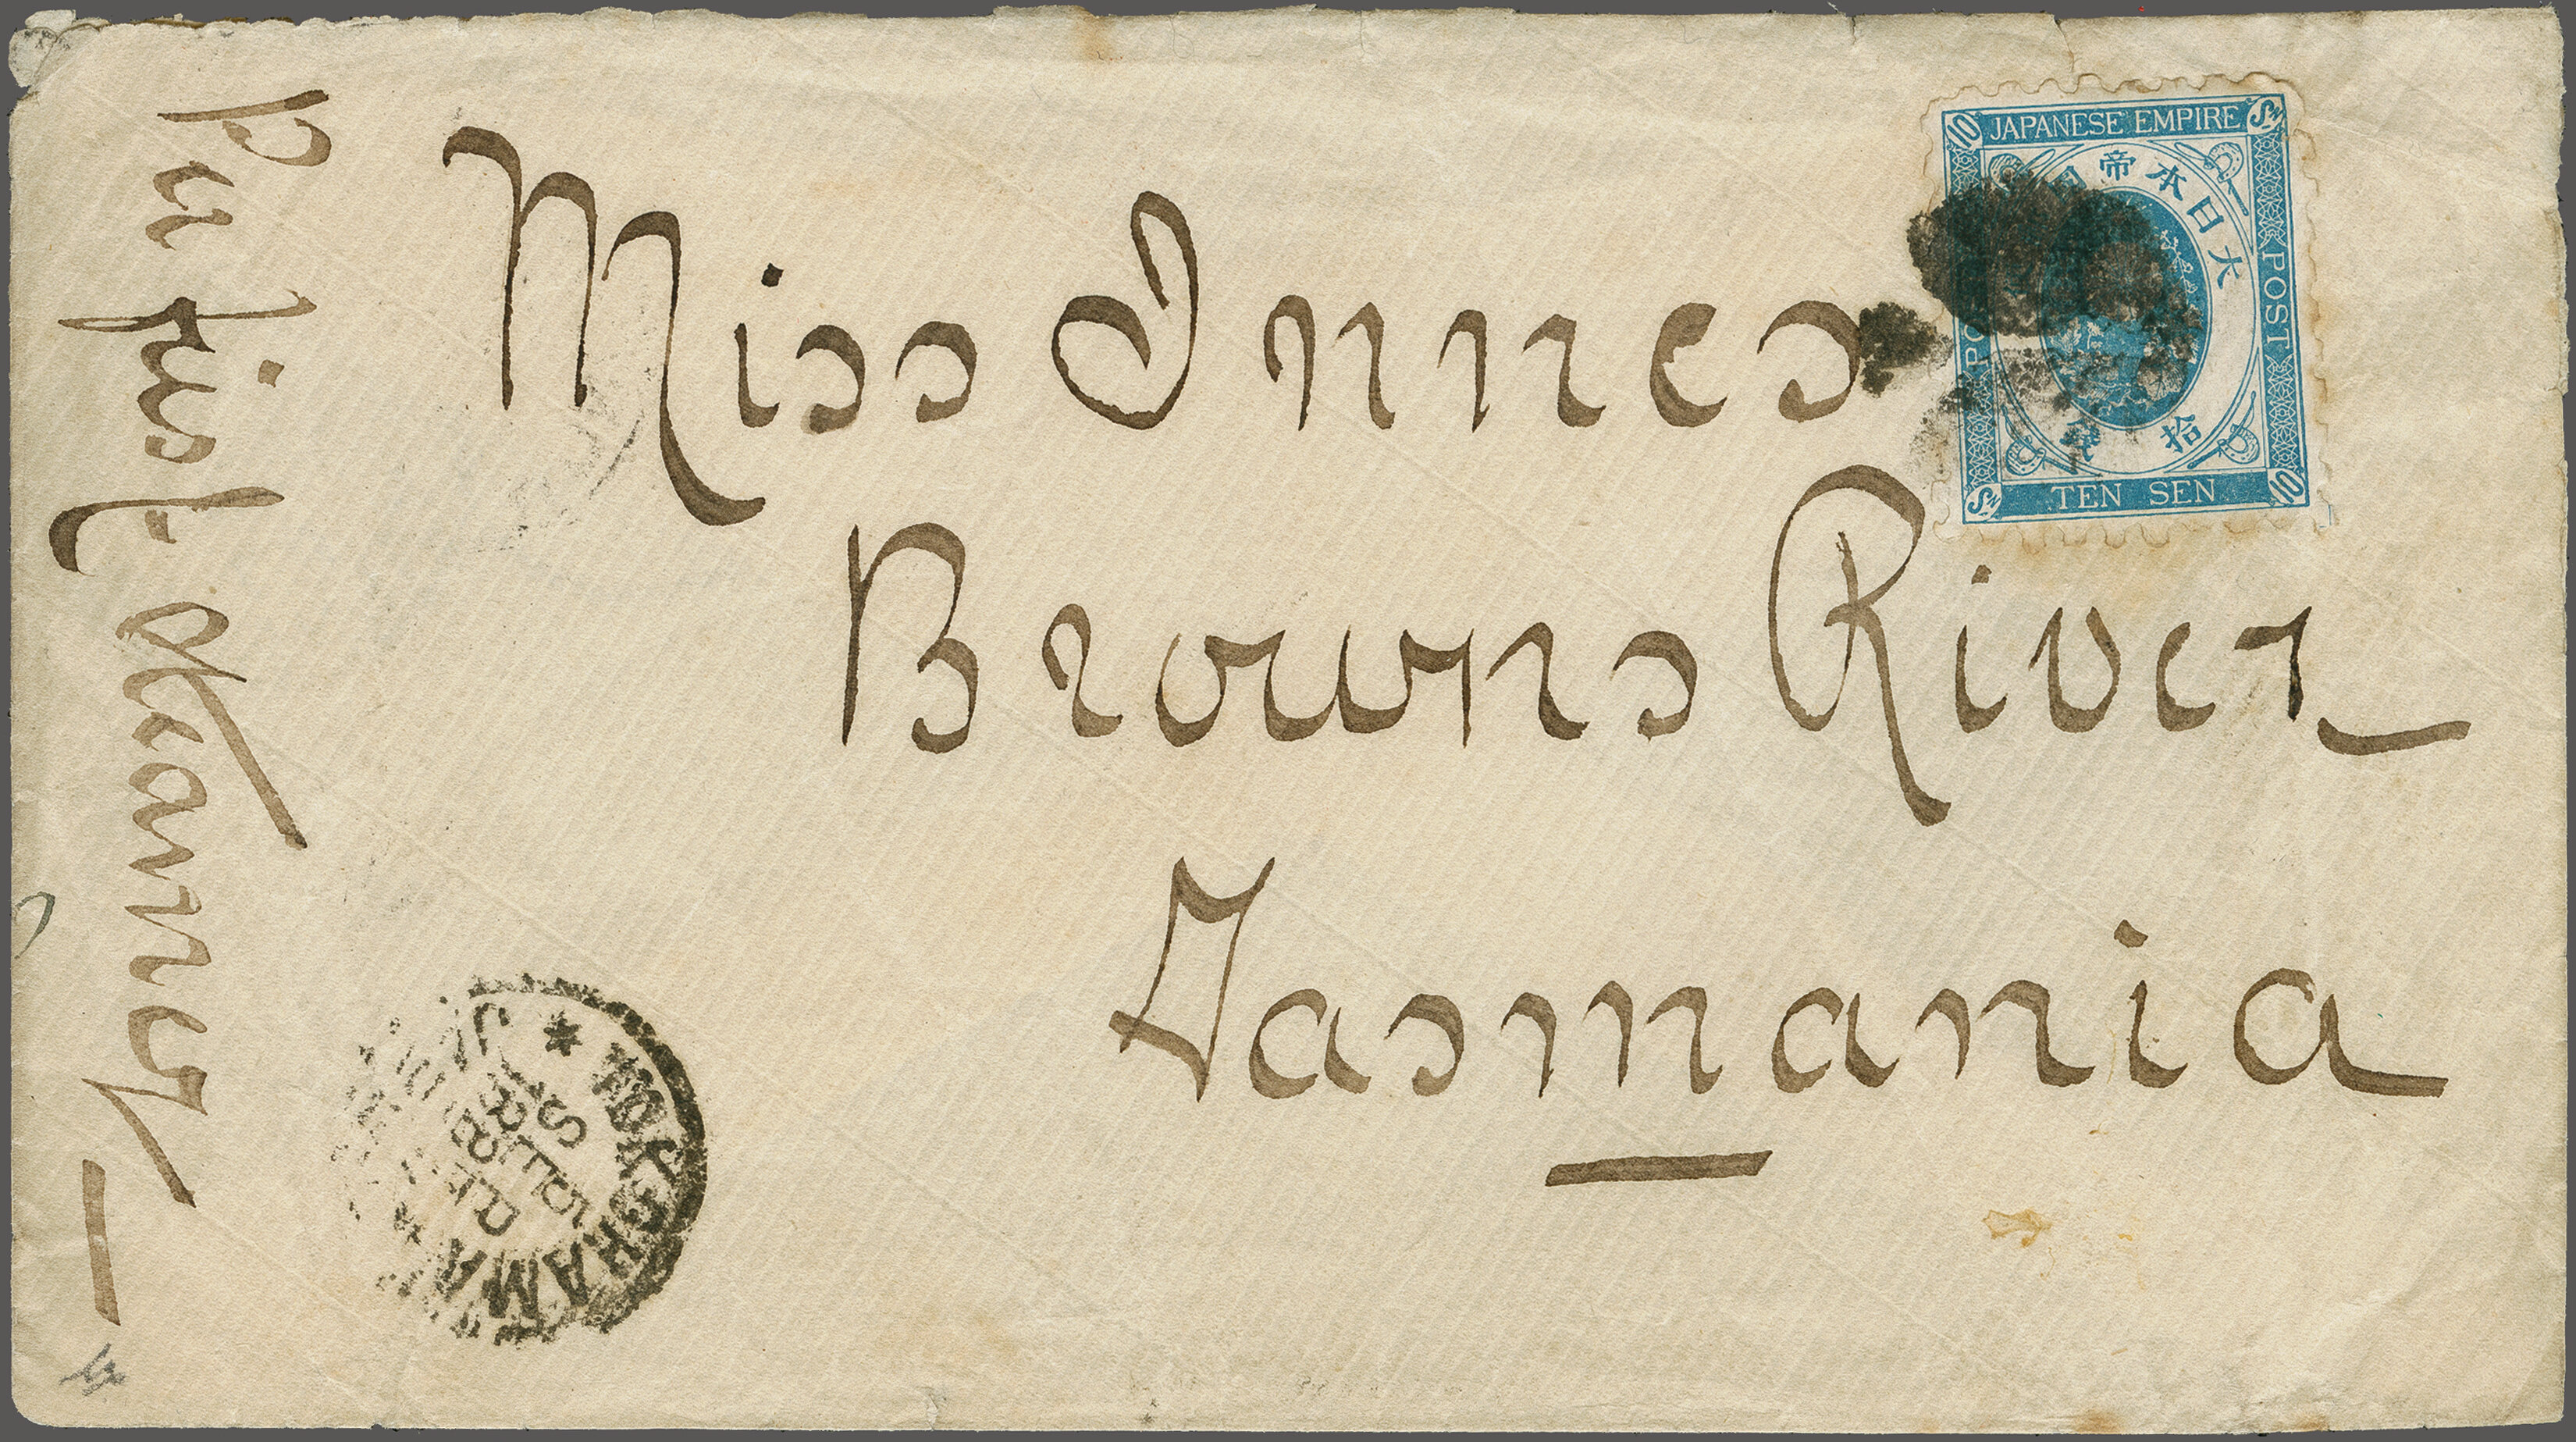 Per first steamer
Miss Innes
Browns River
Tasmania
JAPANESE EMPIRE
10
大日本帝
POST
拾錢
TEN SEN
10
YOKOHAMA
JAPAN